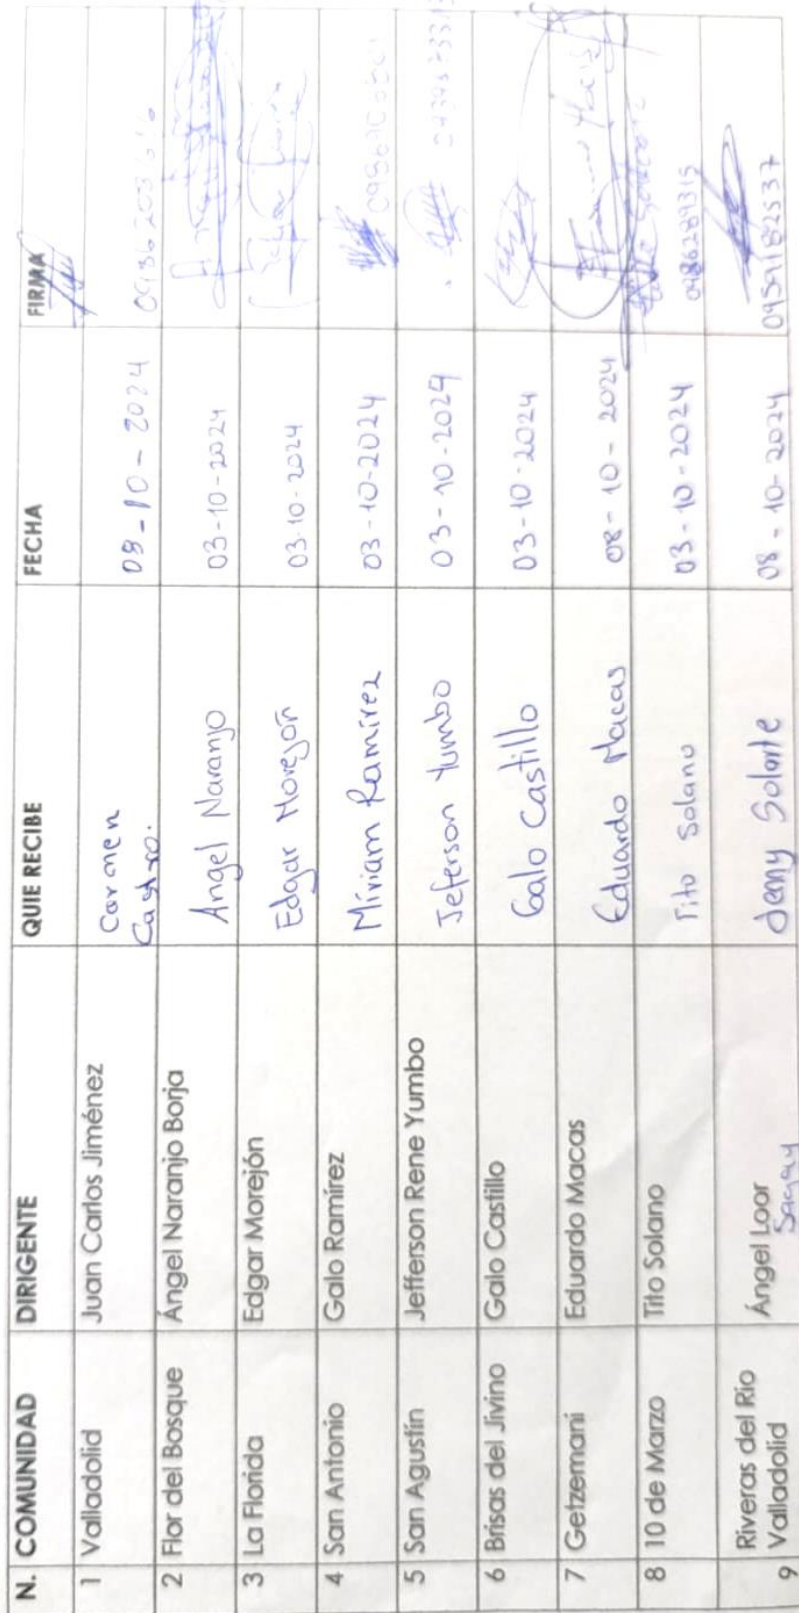 N. COMUNIDAD DIRIGENTE QUIE RECIBE FECHA FIRMA
1 Valladolid Juan Carlos Jiménez Carmen Castro. 08-10-2024
2 Flor del Bosque Ángel Naranjo Borja Angel Naranjo 03-10-2024
3 La Florida Edgar Morejón Edgar Morejón 03-10-2024
4 San Antonio Galo Ramírez Míriam Ramírez 03-10-2024
5 San Agustín Jefferson Rene Yumbo Jeferson Yumbo 03-10-2024
6 Brisas del Jivino Galo Castillo Galo Castillo 03-10-2024
7 Getzemani Eduardo Macas Eduardo Macas 08-10-2024
8 10 de Marzo Tito Solano Tito Solano 03-10-2024 0486289315
Riveras del Rio
9 Valladolid Ángel Loor Jenny Solorte 08-10-2024 0959182537